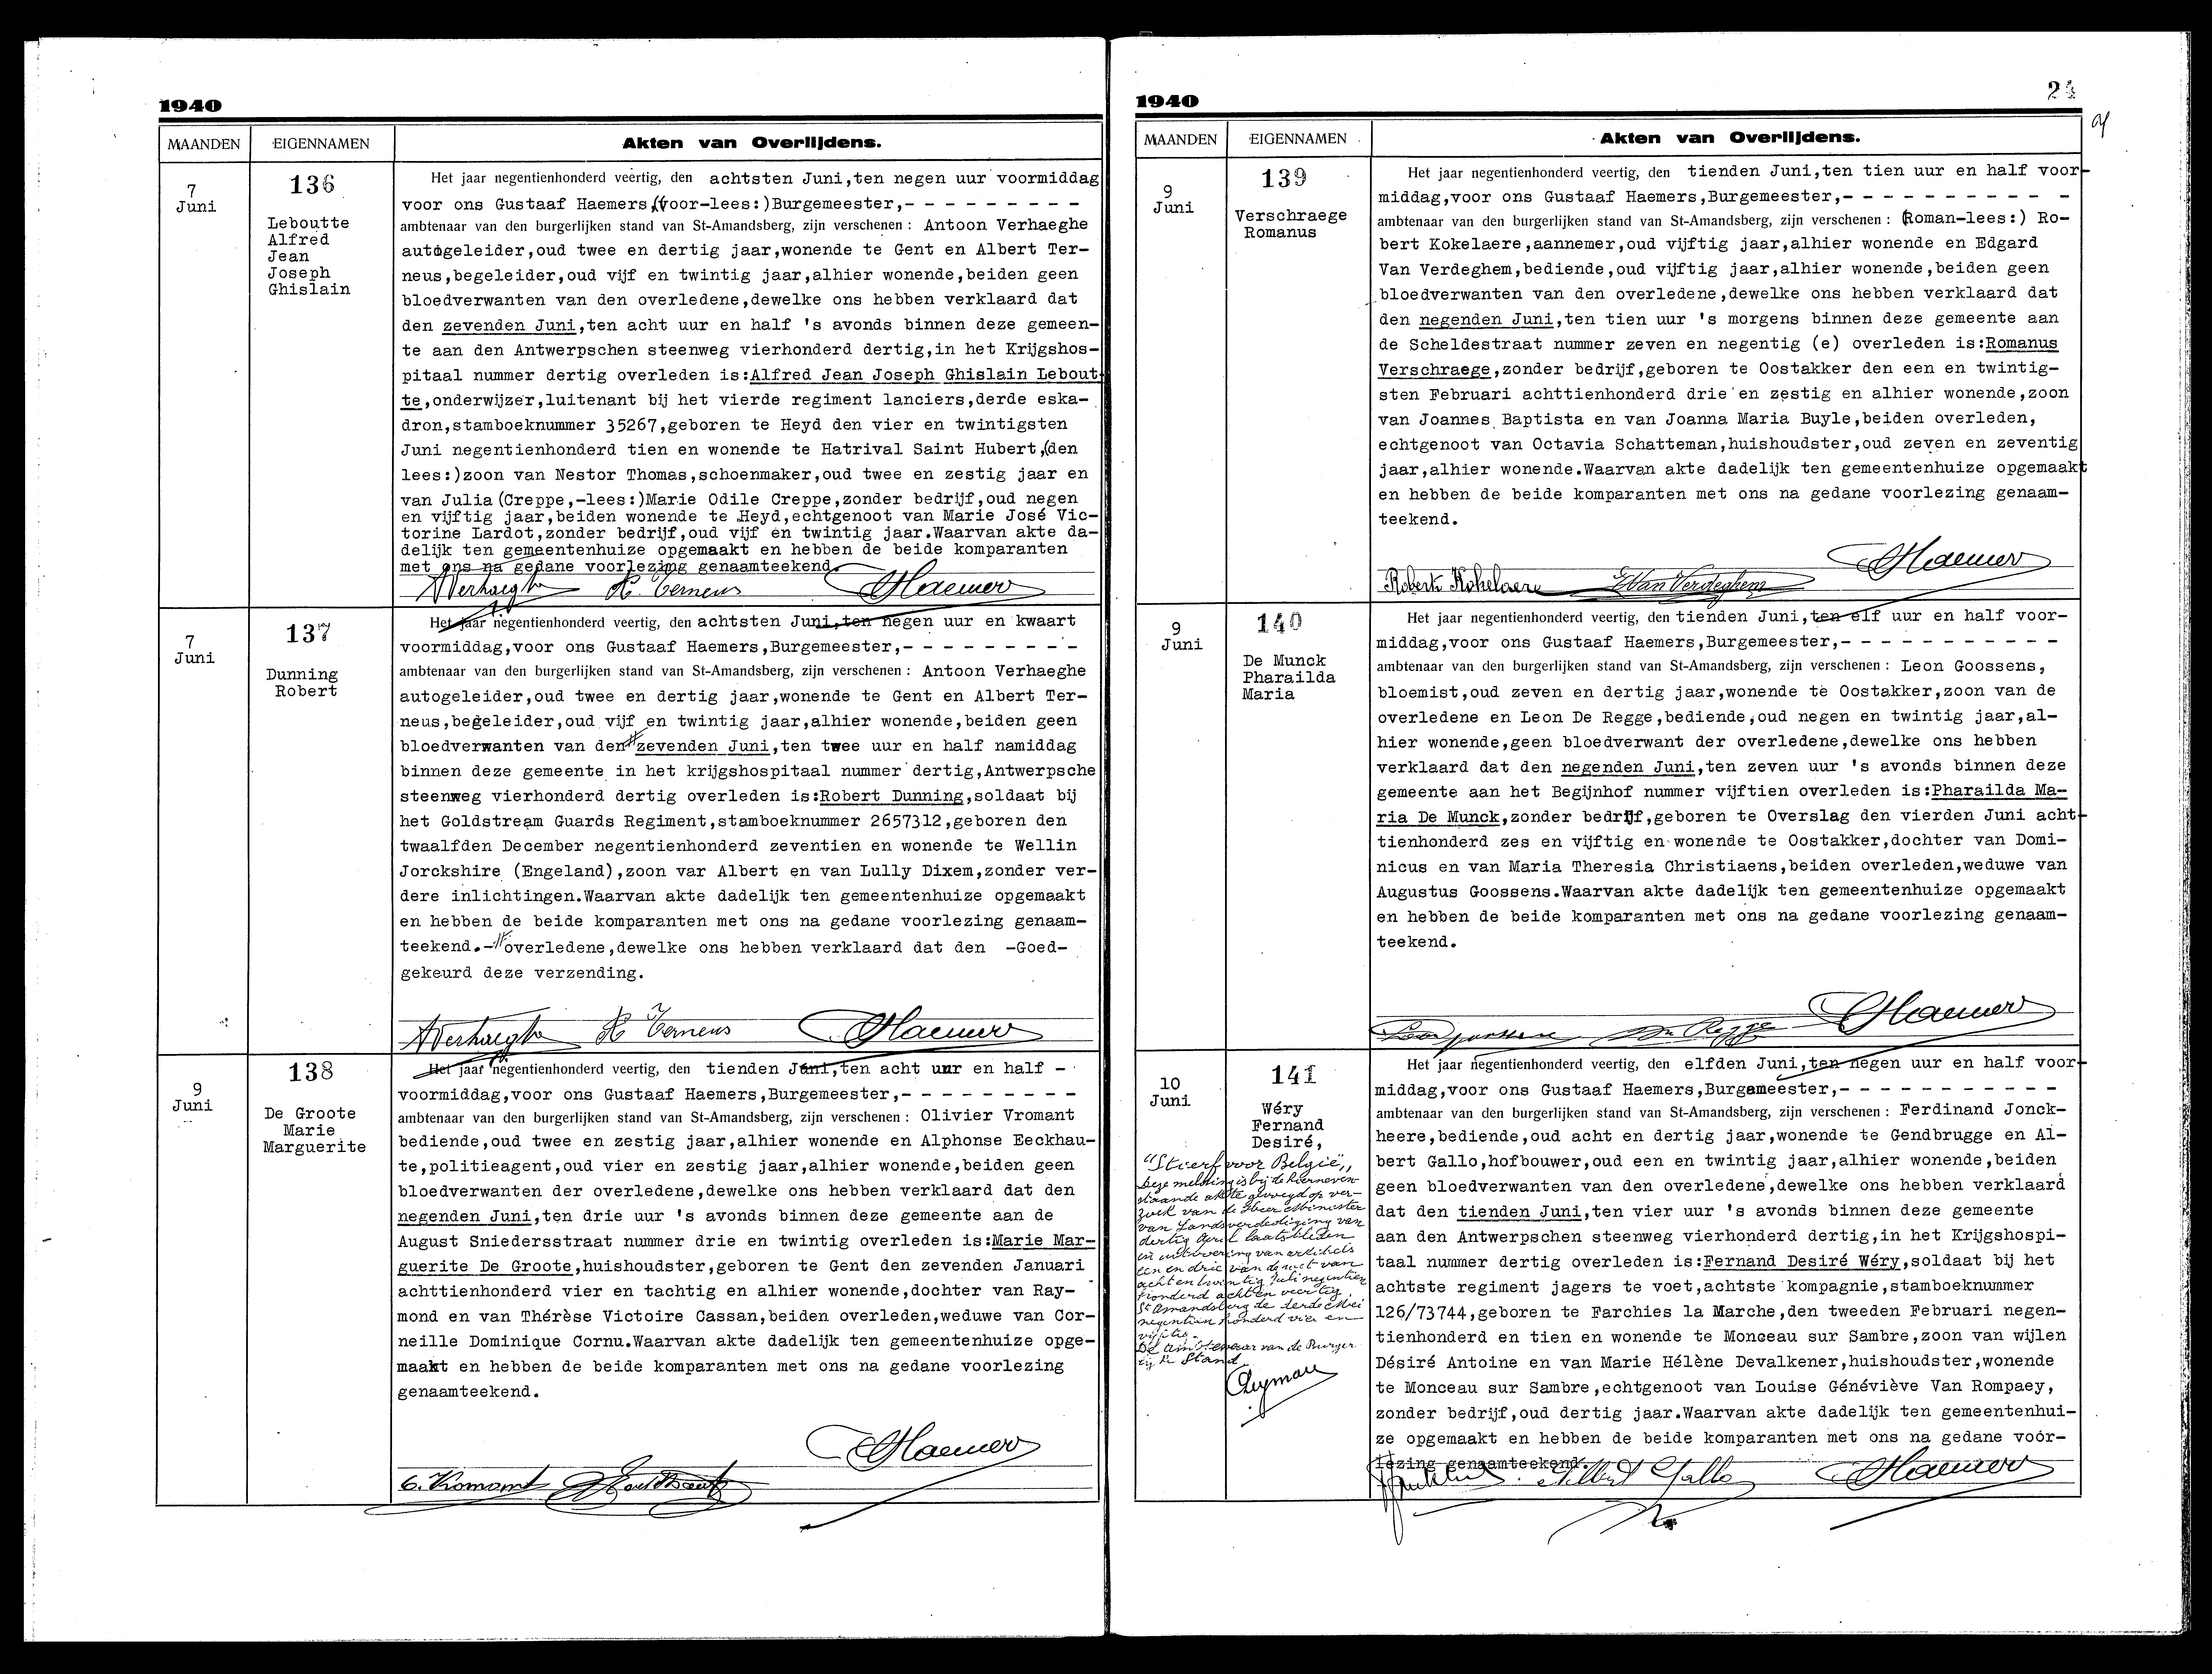 1940
MAANDEN EIGENNAMEN Akten van Overlijdens.
7
Juni
136
Leboutte
Alfred
Jean
Joseph
Ghislain
Het jaar negentienhonderd veertig, den achtsten Juni,ten negen uur voormiddag
voor ons Gustaaf Haemers,(voor-lees:)Burgemeester,- - - - - - - - - -
ambtenaar van den burgerlijken stand van St-Amandsberg, zijn verschenen : Antoon Verhaeghe
autogeleider,oud twee en dertig jaar,wonende te Gent en Albert Ter-
neus,begeleider,oud vijf en twintig jaar,alhier wonende,beiden geen
bloedverwanten van den overledene,dewelke ons hebben verklaard dat
den zevenden Juni,ten acht uur en half 's avonds binnen deze gemeen-
te aan den Antwerpschen steenweg vierhonderd dertig,in het Krijgshos-
pitaal nummer dertig overleden is:Alfred Jean Joseph Ghislain Lebout-
te,onderwijzer,luitenant bij het vierde regiment lanciers,derde eska-
dron,stamboeknummer 35267,geboren te Heyd den vier en twintigsten
Juni negentienhonderd tien en wonende te Hatrival Saint Hubert,(den
lees:)zoon van Nestor Thomas,schoenmaker,oud twee en zestig jaar en
van Julia (Creppe,-lees:)Marie Odile Creppe,zonder bedrijf,oud negen
en vijftig jaar,beiden wonende te Heyd,echtgenoot van Marie José Vic-
torine Lardot,zonder bedrijf,oud vijf en twintig jaar.Waarvan akte da-
delijk ten gemeentenhuize opgemaakt en hebben de beide komparanten
met ons na gedane voorlezing genaamteekend.
AVerhaeghe A. Terneus GHaemers
7
Juni
137
Dunning
Robert
Het jaar negentienhonderd veertig, den achtsten Juni,ten negen uur en kwaart
voormiddag,voor ons Gustaaf Haemers,Burgemeester,- - - - - - - - - -
ambtenaar van den burgerlijken stand van St-Amandsberg, zijn verschenen : Antoon Verhaeghe
autogeleider,oud twee en dertig jaar,wonende te Gent en Albert Ter-
neus,begeleider,oud vijf en twintig jaar,alhier wonende,beiden geen
bloedverwanten van den # zevenden Juni,ten twee uur en half namiddag
binnen deze gemeente in het krijgshospitaal nummer dertig,Antwerpsche
steenweg vierhonderd dertig overleden is:Robert Dunning,soldaat bij
het Goldstream Guards Regiment,stamboeknummer 2657312,geboren den
twaalfden December negentienhonderd zeventien en wonende te Wellin
Jorckshire (Engeland),zoon var Albert en van Lully Dixem,zonder ver-
dere inlichtingen.Waarvan akte dadelijk ten gemeentenhuize opgemaakt
en hebben de beide komparanten met ons na gedane voorlezing genaam-
teekend.-# overledene,dewelke ons hebben verklaard dat den -Goed-
gekeurd deze verzending.
AVerhaeghe A Terneus GHaemers
9
Juni
138
De Groote
Marie
Marguerite
Het jaar negentienhonderd veertig, den tienden Juni,ten acht uur en half -
voormiddag,voor ons Gustaaf Haemers,Burgemeester,- - - - - - - - - -
ambtenaar van den burgerlijken stand van St-Amandsberg, zijn verschenen : Olivier Vromant
bediende,oud twee en zestig jaar,alhier wonende en Alphonse Eeckhau-
te,politieagent,oud vier en zestig jaar,alhier wonende,beiden geen
bloedverwanten der overledene,dewelke ons hebben verklaard dat den
negenden Juni,ten drie uur 's avonds binnen deze gemeente aan de
August Sniedersstraat nummer drie en twintig overleden is:Marie Mar-
guerite De Groote,huishoudster,geboren te Gent den zevenden Januari
achttienhonderd vier en tachtig en alhier wonende,dochter van Ray-
mond en van Thérèse Victoire Cassan,beiden overleden,weduwe van Cor-
neille Dominique Cornu.Waarvan akte dadelijk ten gemeentenhuize opge-
maakt en hebben de beide komparanten met ons na gedane voorlezing
genaamteekend.
GHaemers
O. Vromant
1940
24
MAANDEN EIGENNAMEN Akten van Overlijdens.
9
Juni
139
Verschraege
Romanus
Het jaar negentienhonderd veertig, den tienden Juni,ten tien uur en half voor-
middag,voor ons Gustaaf Haemers,Burgemeester,- - - - - - - - - - -
ambtenaar van den burgerlijken stand van St-Amandsberg, zijn verschenen : (Roman-lees:) Ro-
bert Kokelaere,aannemer,oud vijftig jaar,alhier wonende en Edgard
Van Verdeghem,bediende,oud vijftig jaar,alhier wonende,beiden geen
bloedverwanten van den overledene,dewelke ons hebben verklaard dat
den negenden Juni,ten tien uur 's morgens binnen deze gemeente aan
de Scheldestraat nummer zeven en negentig (e) overleden is:Romanus
Verschraege,zonder bedrijf,geboren te Oostakker den een en twintig-
sten Februari achttienhonderd drie en zestig en alhier wonende,zoon
van Joannes Baptista en van Joanna Maria Buyle,beiden overleden,
echtgenoot van Octavia Schatteman,huishoudster,oud zeven en zeventig
jaar,alhier wonende.Waarvan akte dadelijk ten gemeentenhuize opgemaakt
en hebben de beide komparanten met ons na gedane voorlezing genaam-
teekend.
GHaemers
Robert Kokelaere EVan Verdeghem
9
Juni
140
De Munck
Pharailda
Maria
Het jaar negentienhonderd veertig, den tienden Juni,ten elf uur en half voor-
middag,voor ons Gustaaf Haemers,Burgemeester,- - - - - - - - - - -
ambtenaar van den burgerlijken stand van St-Amandsberg, zijn verschenen : Leon Goossens,
bloemist,oud zeven en dertig jaar,wonende te Oostakker,zoon van de
overledene en Leon De Regge,bediende,oud negen en twintig jaar,al-
hier wonende,geen bloedverwant der overledene,dewelke ons hebben
verklaard dat den negenden Juni,ten zeven uur 's avonds binnen deze
gemeente aan het Begijnhof nummer vijftien overleden is:Pharailda Ma-
ria De Munck,zonder bedrijf,geboren te Overslag den vierden Juni acht-
tienhonderd zes en vijftig en wonende te Oostakker,dochter van Domi-
nicus en van Maria Theresia Christiaens,beiden overleden,weduwe van
Augustus Goossens.Waarvan akte dadelijk ten gemeentenhuize opgemaakt
en hebben de beide komparanten met ons na gedane voorlezing genaam-
teekend.
Leon Goossens De Regge GHaemers
10
Juni
141
Wéry
Fernand
Desiré,
"Stierf voor België"
Deze melding is bij de hierneven-
staande akte gevoegd op ver-
zoek van de Heer Minister
van Landsverdediging van
dertig April laatstleden
in uitvoering van artikels
een en drie van de wet van
acht en twintig Juli negentien
honderd acht en veertig.
St Amandsberg de derde Mei
negentien honderd vier en
vijftig.
De Ambtenaar van de Burger
lijke Stand
Het jaar negentienhonderd veertig, den elfden Juni,ten negen uur en half voor-
middag,voor ons Gustaaf Haemers,Burgameester,- - - - - - - - - - -
ambtenaar van den burgerlijken stand van St-Amandsberg, zijn verschenen : Ferdinand Jonck-
heere,bediende,oud acht en dertig jaar,wonende te Gendbrugge en Al-
bert Gallo,hofbouwer,oud een en twintig jaar,alhier wonende,beiden
geen bloedverwanten van den overledene,dewelke ons hebben verklaard
dat den tienden Juni,ten vier uur 's avonds binnen deze gemeente
aan den Antwerpschen steenweg vierhonderd dertig,in het Krijgshospi-
taal nummer dertig overleden is:Fernand Desiré Wéry,soldaat bij het
achtste regiment jagers te voet,achtste kompagnie,stamboeknummer
126/73744,geboren te Farchies la Marche,den tweeden Februari negen-
tienhonderd en tien en wonende te Monceau sur Sambre,zoon van wijlen
Désiré Antoine en van Marie Hélène Devalkener,huishoudster,wonende
te Monceau sur Sambre,echtgenoot van Louise Généviève Van Rompaey,
zonder bedrijf,oud dertig jaar.Waarvan akte dadelijk ten gemeentenhui-
ze opgemaakt en hebben de beide komparanten met ons na gedane voor-
lezing genaamteekend.
Albert Gallo GHaemers